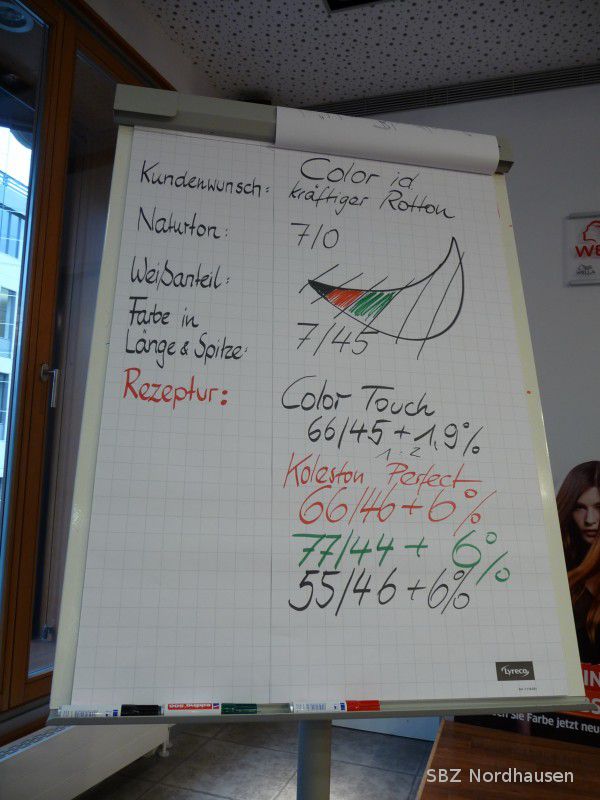 Kundenwunsch: Color id
kräftiger Rotton
Naturton: 7/0
Weißanteil:
Farbe in
Länge & Spitze: 7/45
Rezeptur: Color Touch
66/45 + 1,9%
1:2
Koleston Perfect
66/46 + 6%
77/44 + 6%
55/46 + 6%
Lyreco
edding
WE
WELLA
IN
S
Sie Farbe jetzt neu
SBZ Nordhausen